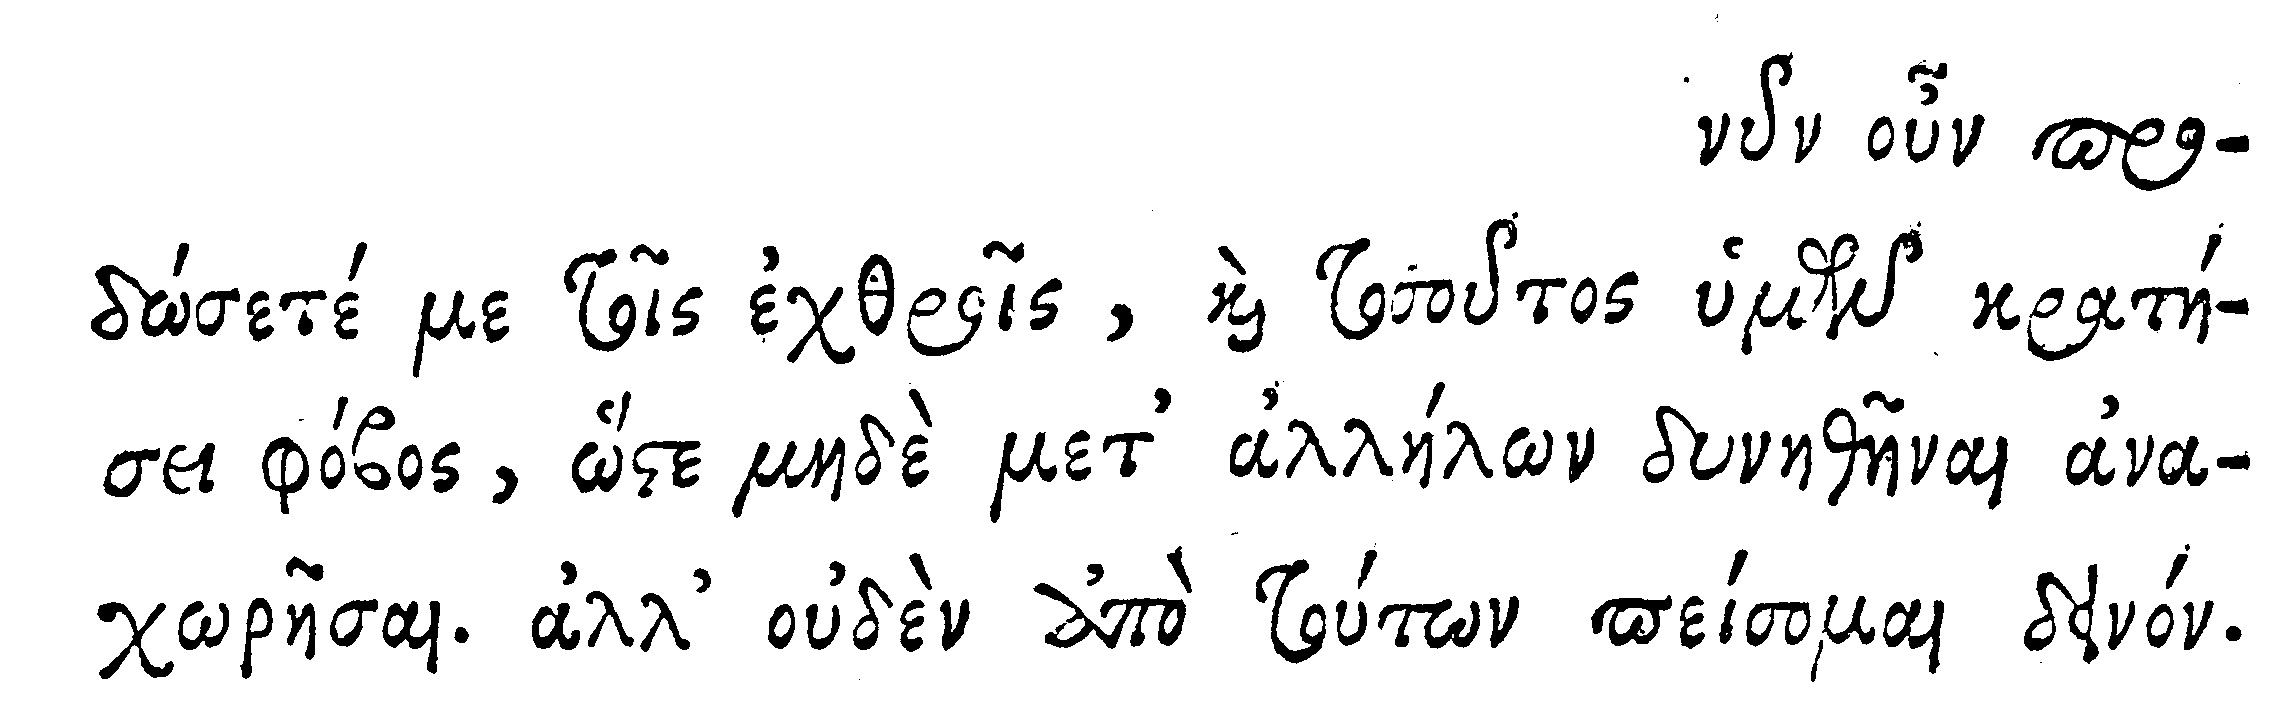 νῦν οὖν προ-
δώσετέ με τοῖς ἐχθροῖς, καὶ τοσοῦτος ὑμῶν κρατή-
σει φόβος, ὥστε μηδὲ μετ’ ἀλλήλων δυνηθῆναι ἀνα-
χωρῆσαι. ἀλλ’ οὐδὲν ἀπὸ τούτων πείσομαι δεινόν.